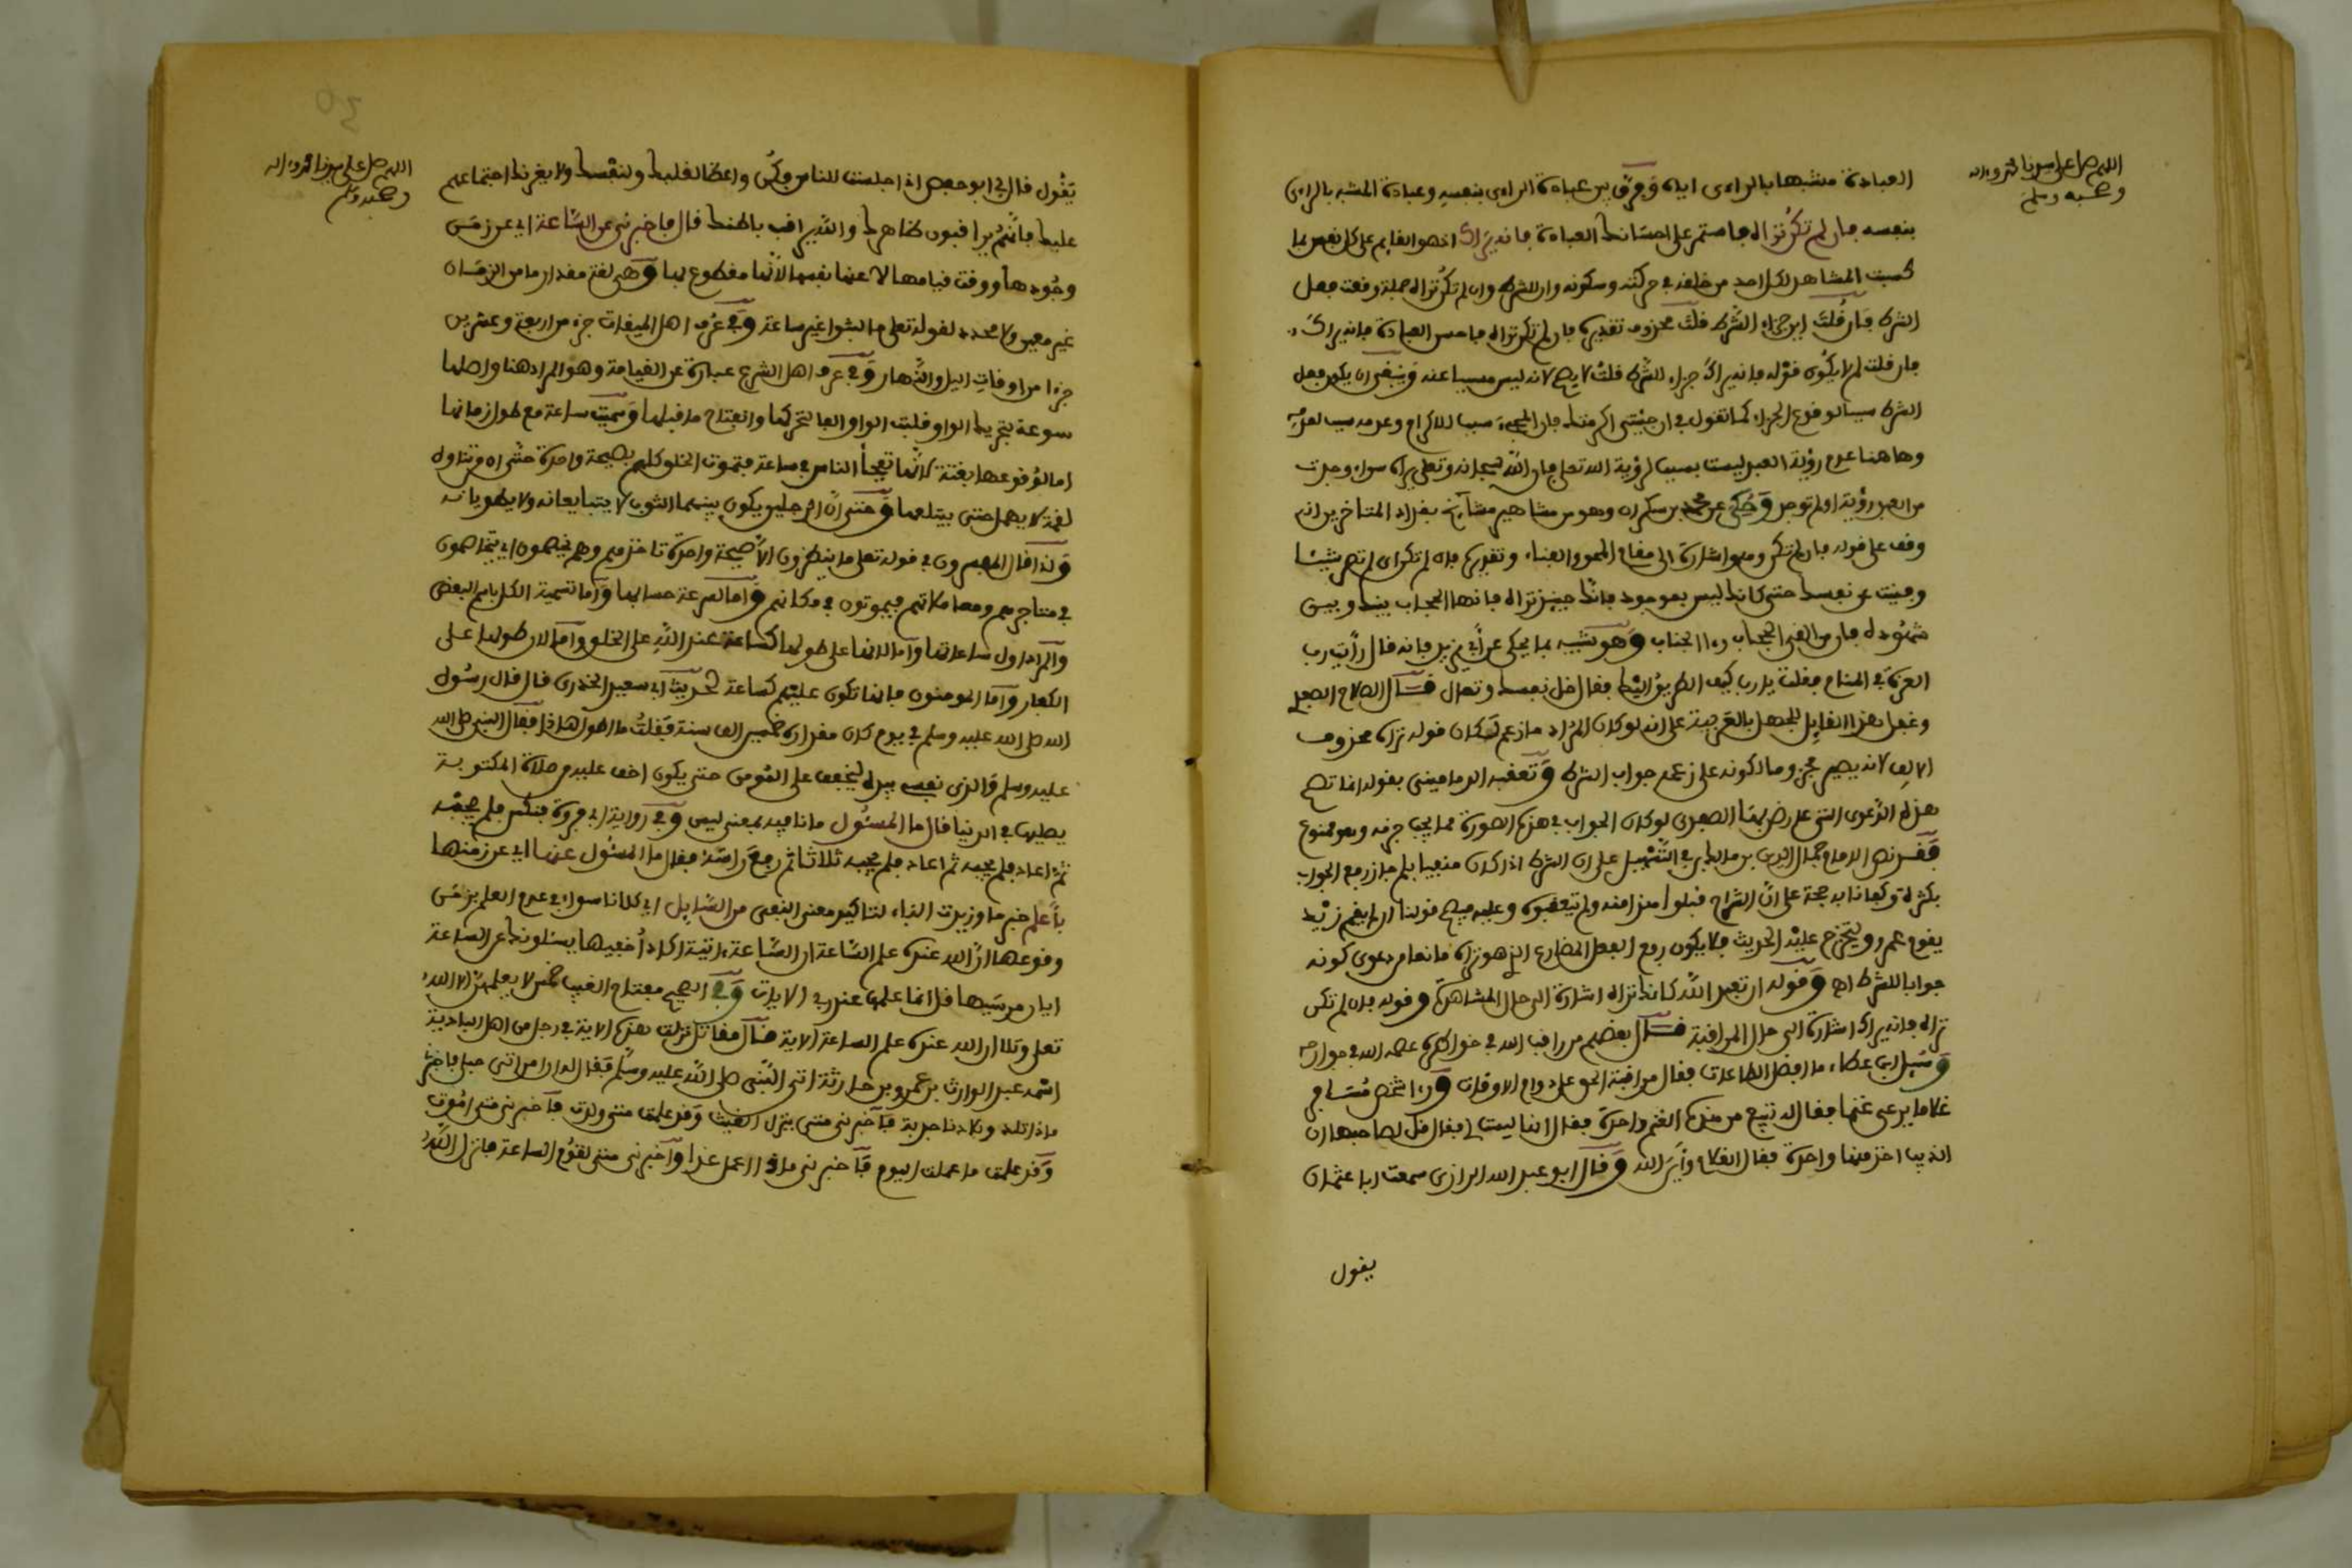 اللهم صل على سيدنا محمد وءاله
وصحبه وسلم
العبادة مشبها بالراءى اياه وفرق بين عبادة الراءى بنفسه وعبادة المشبه بالراءى
بنفسه فان لم تكن تراه فاستمر على احسانك العبادة فانه يراك اذ هو القايم على كل نفس بما
كسبت المشاهد لكل احد من خلقه في حركته وسكونه وان للشرط وان لم تكن تراه جملة وقعت فعل
الشرط فان قلت اين جزاء الشرط قلت محذوف تقديره فان لم تكن تراه فاحسن العبادة فانه يراك
فان قلت لم لا يكون قوله فانه يراك جزاء للشرط قلت لا يصح لانه ليس مسببا عنه وينبغى ان يكون فعل
الشرط سببا لوقوع الجزاء كما تقول في ان جيتنى اكرمتك فان المجيء سبب للاكرام وعدمه سبب لعدمه
وهاهنا عدم روية العبد ليست بسبب لروية الله تعلى فان الله سبحانه وتعلى يراه سواء وجدت
من العبد روية او لم توجد وحكى عن محمد بن سكران وهو من مشاهير مشايخ بغداد المتاخرين انه
وقف على قوله فان لم تكن وهو اشارة الى مقام المحو والفناء وتقديره فان لم تكن اى لم تصر شيئا
وفنيت عن نفسك حتى كانك ليس بموجود فانك حينيذ تراه فانها الحجاب بينك وبين
شهوده فان من القى الحجاب راا الجناب وهو شبيه بما يحكى عن أبي يزيد فانه قال رأيت رب
العزة في المنام فقلت يا رب كيف الطريق اليك فقال خل نفسك وتعال قال الصلاح الصفدي
وغفل هذا القايل للجهل بالعربية على انه لو كان المراد ما زعم لكان قوله تراه محذوف
الالف لانه يصير مجزوما لكونه على زعمه جواب الشرط وتعقبه الدمامينى بقوله انما تصح
هذه الدعوى التى على رض بها الصفدى لو كان الجواب في هذه الصورة مما يجب جزمه وهو ممنوع
فقد نص الامام جمال الدين بن مالك في التسهيل على ان الشرط اذا كان منفيا بلم جاز رفع الجواب
بكثرة وكفانا به حجة على ان الشراح قبلوا هذا منه ولم يتعقبوه وعليه فيصح قولنا ان لم يقم زيد
يقوم عمرو ويتخرج عليه الحديث فلا يكون رفع الفعل المضارع الذي هو تراه مانعا من دعوى كونه
جوابا للشرط اه وقوله ان تعبد الله كانك تراه اشارة الى حال المشاهدة وقوله فان لم تكن
تراه فانه يراك اشارة الى حال المراقبة قال بعضهم من راقب الله في خواطره عصمه الله في جوارحه
وسيل ابن عطاء ما افضل الطاعات فقال مراقبة الحق على دوام الاوقات وراا شخص مسافر
غلاما يرعى غنما فقال له تبيع من هذه الغنم واحدة فقال انها ليست لى فقال قل لصاحبها ان
الذيب اخذ منها واحدة فقال الغلام وأين الله وقال ابو عبد الله الرازى سمعت ابا عثمان
يقول
اللهم صل على سيدنا محمد وءاله
وصحبه وسلم
يقول قال لي ابو حفص اذا جلست للناس فكن واعظا لقلبك ولنفسك ولا يغرنك اجتماعهم
عليك فانهم يراقبون ظاهرك والله يراقب باطنك قال فاخبرنى عن الساعة اى عن زمن
وجودها ووقت قيامها لا عنها نفسها لانها مقطوع بها وهى لغة مقدار ما من الزمان
غير معين ولا محدد لقوله تعلى ما لبثوا غير ساعة وفي عرف اهل الميقات جزء من اربعة وعشرين
جزءا من اوقات اليل والنهار وفي عرف اهل الشرع عبارة عن القيامة وهو المراد هنا واصلها
سوعة بتحريك الواو قلبت الواو الفا لتحركها وانفتاح ما قبلها وسميت ساعة مع طول زمانها
اما لوقوعها بغتة لانها تفجأ الناس في ساعة فتموت الخلق كلهم بصيحة واحدة حتى ان من تناول
لقمة لا يمهل حتى يبتلعها وحتى ان الرجلين يكون بينهما الثوب لا يتبايعانه ولا يطويانه
وكذا قال المفسرون في قوله تعلى ما ينظرون الا صيحة واحدة تاخذهم وهم يخصمون اى يتخاصمون
في متاجرهم ومعاملاتهم فيموتون في مكانهم واما لسرعة حسابها واما تسمية الكل باسم البعض
والمراد اول ساعاتها واما لانها على طولها كساعة عند الله على الخلق واما لان طولها على
الكفار واما المومنون فانها تكون عليهم كساعة لحديث أبي سعيد الخدرى قال قال رسول
الله صلى الله عليه وسلم في يوم كان مقداره خمسين الف سنة فقلت ما اطول هذا فقال النبي صلى الله
عليه وسلم والذى نفسى بيده ليخفف على المومن حتى يكون اخف عليه من صلاة المكتوبة
يصليها في الدنيا قال ما المسئول ما نافية بمعنى ليس وفي رواية أبي فروة فنكس فلم يجبه
ثم اعاد فلم يجبه ثم اعاد فلم يجبه ثلاثا ثم رفع رأسه فقال ما المسئول عنها اى عن زمنها
بأعلم خبر ما وزيدت الباء لتاكيد معنى النفى من السايل اى كلانا سواء في عدم العلم بزمن
وقوعها ان الله عنده علم الساعة ان الساعة ءاتية اكاد أخفيها يسئلونك عن الساعة
ايان مرسيها قل انما علمها عند ربي الايات وفي الصحيح مفتاح الغيب خمس لا يعلمهن الا الله
تعلى وتلا ان الله عنده علم الساعة الاية قال مقاتل نزلت هذه الاية في رجل من اهل البادية
اسمه عبد الوارث بن عمرو بن حارثة اتى النبي صلى الله عليه وسلم فقال له ان امرأتى حبلى فاخبرنى
ماذا تلد وبلادنا جدبة فأخبرنى متى ينزل الغيث وقد علمت متى ولدت فأخبرنى متى اموت
وقد علمت ما عملت اليوم فأخبرنى ماذا اعمل غدا وأخبرنى متى تقوم الساعة فانزل الله